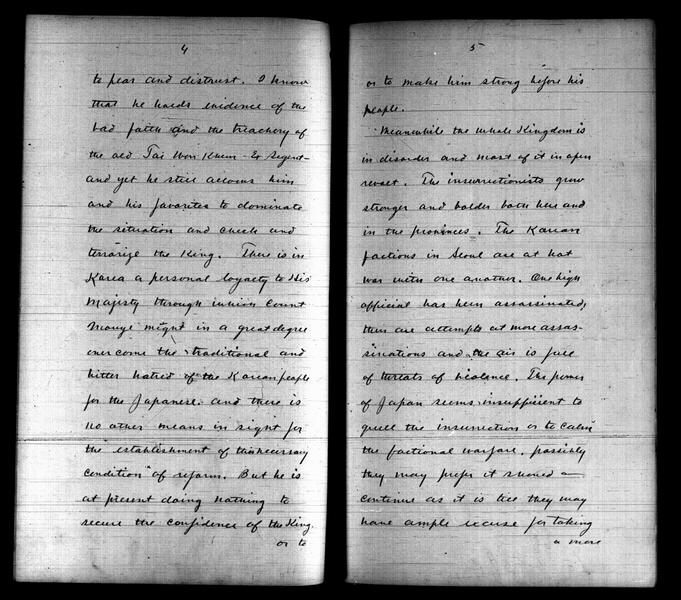 4
to fear and distrust. I know
that he holds evidence of the
bad faith and the treachery of
the old Tai Won Khun - Ex Regent -
and yet he still allows him
and his favorites to dominate
the situation and check and
terrorize the King. There is in
Korea a personal loyalty to His
Majesty through which Count
Inouye might in a great degree
overcome the traditional and
bitter hatred of the Korean people
for the Japanese. and there is
no other means in sight for
the establishment of this necessary
condition of reform. But he is
at present doing nothing to
secure the confidence of the King.
or to
5
or to make him strong before his
people.
Meanwhile the whole Kingdom is
in disorder and most of it in open
revolt. The insurrectionists grow
stronger and bolder both here and
in the provinces. The Korean
factions in Seoul are at hot
war with one another. One high
official has been assassinated,
there are attempts at more assas-
sinations and the air is full
of threats of violence. The power
of Japan seems insufficient to
quell the insurrection or to calm
the factional warfare. possibly
they may prefer it should
continue as it is till they may
have ample excuse for taking
a more